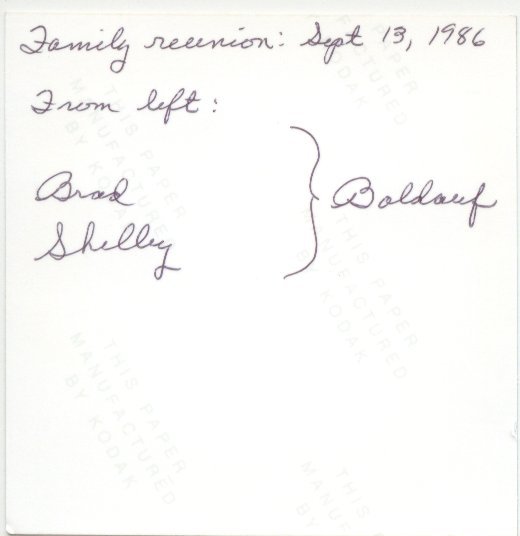 Family reunion: Sept 13, 1986
From left:
Brad
Shelley
} Baldauf
THIS PAPER
MANUFACTURED
BY KODAK
THIS PAPER
MANUFACTURED
BY KODAK
THIS PAPER
MANUFACTURED
BY KODAK
THIS PAPER
MANUFACTURED
BY KODAK
THIS
MANUFA
BY